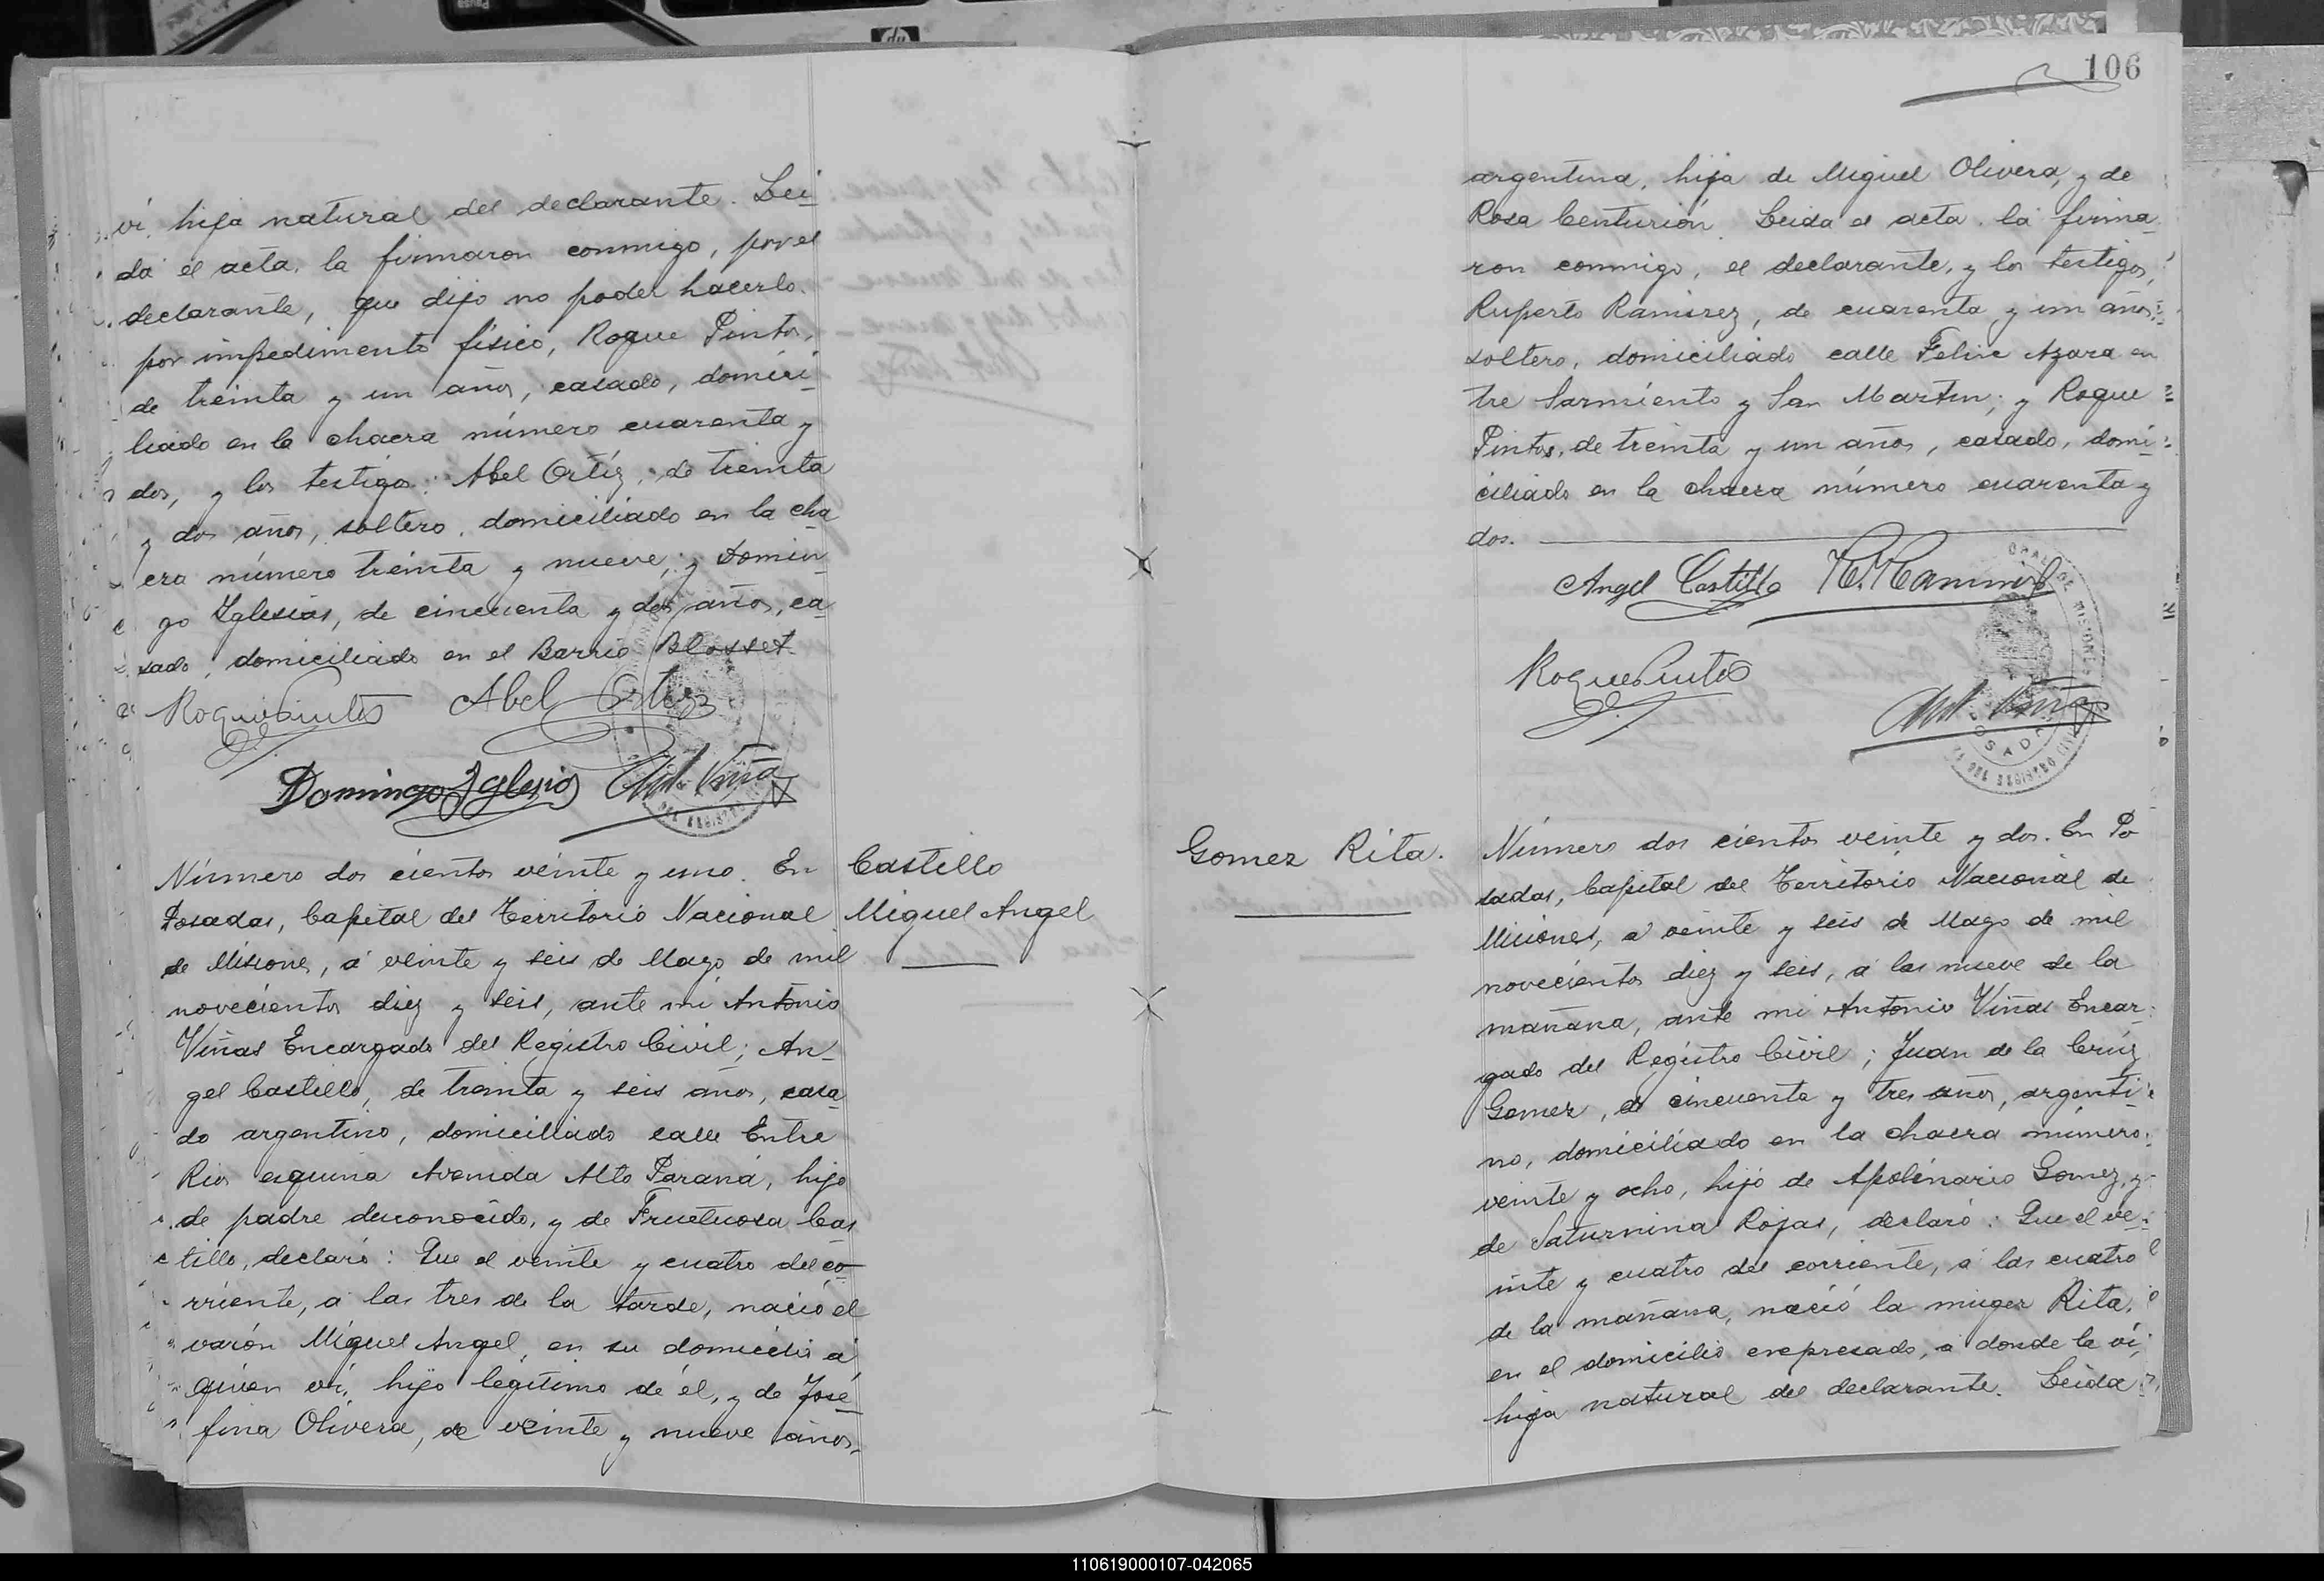 vi, hija natural del declarante. Lei-
da el acta, la firmaron conmigo, por el
declarante, que dijo no poder hacerlo
por impedimento físico, Roque Pintos,
de treinta y un años, casado, domici-
liado en la chacra número cuarenta y
dos, y los testigos: Abel Ortíz, de treinta
y dos años, soltero, domiciliado en la cha
cra número treinta y nueve; y Domin-
go Iglesias, de cincuenta y dos años, ca-
sado, domiciliado en el Barrio Blosset.
Roque Pintos Abel Ortiz
Domingo Iglesias Ant. Viñas
Castillo
Miguel Angel
Número dos cientos veinte y uno. En
Posadas, Capital del Territorio Nacional
de Misiones, á veinte y seis de Mayo de mil
novecientos diez y seis, ante mi Antonio
Viñas Encargado del Registro Civil; An-
gel Castillo, de treinta y seis años, casa-
do argentino, domiciliado calle Entre
Rios esquina Avenida Alto Paraná, hijo
de padre desconocido, y de Fructuosa Cas
tillo, declaró: Que el veinte y cuatro del co-
rriente, a las tres de la tarde, nació el
varón Miguel Angel, en su domicilio á
quien vi, hijo legítimo de él, y de Jose-
fina Olivera, de veinte y nueve años,
106
argentina, hija de Miguel Olivera, y de
Rosa Centurión. Leida el acta, la firma-
ron conmigo, el declarante, y los testigos,
Ruperto Ramirez, de cuarenta y un años
soltero, domiciliado calle Felix Azara en
tre Sarmiento y San Martin; y Roque
Pintos, de treinta y un años, casado, domi-
ciliado en la chacra número cuarenta y
dos.
Angel Castillo R. Ramirez
Roque Pintos Ant. Viñas
Gomez Rita.
Número dos cientos veinte y dos. En Po
sadas, Capital del Territorio Nacional de
Misiones, a veinte y seis de Mayo de mil
novecientos diez y seis, á las nueve de la
mañana, ante mi Antonio Viñas Encar-
gado del Registro Civil; Juan de la Crúz
Gomez, de cincuenta y tres años, argenti-
no, domiciliado en la chacra número
veinte y ocho, hijo de Apolinario Gomez, y
de Saturnina Rojas, declaró: Que el ve-
inte y cuatro del corriente, á las cuatro
de la mañana, nació la muger Rita,
en el domicilio expresado, a donde la vi,
hija natural del declarante. Leida
110619000107-042065